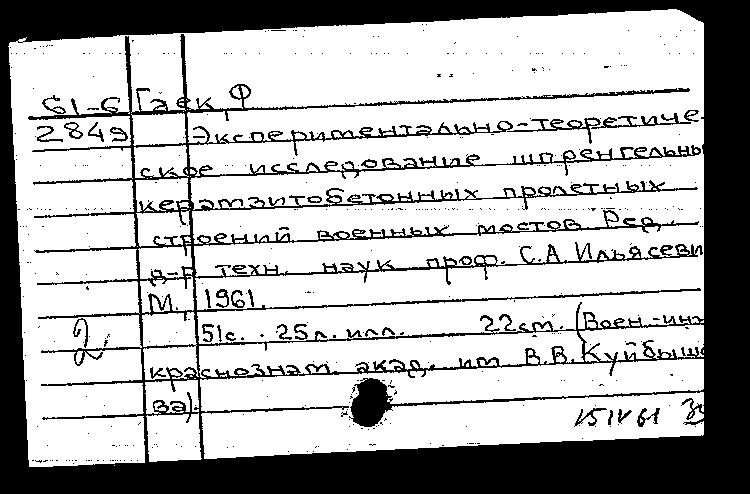 61-6 Гаек, Ф
2849 Экспериментально-теоретиче-
ское исследование шпренгельны
керамзитобетонных пролетных
строений военных мостов Ред.
д-р техн. наук проф. С.А. Ильясеви
М., 1961.
2 51с.; 25л. илл. 22см. (Воен.-инж
краснознам. акад. им В.В. Куйбыше
ва).
15 IV 61